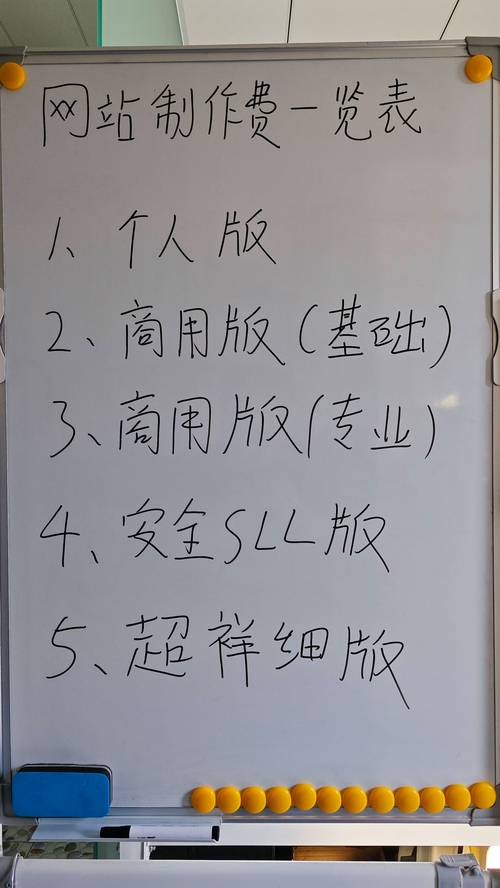 网站制作费一览表
1、个人版
2、商用版(基础)
3、商用版(专业)
4、安全SLL版
5、超祥细版